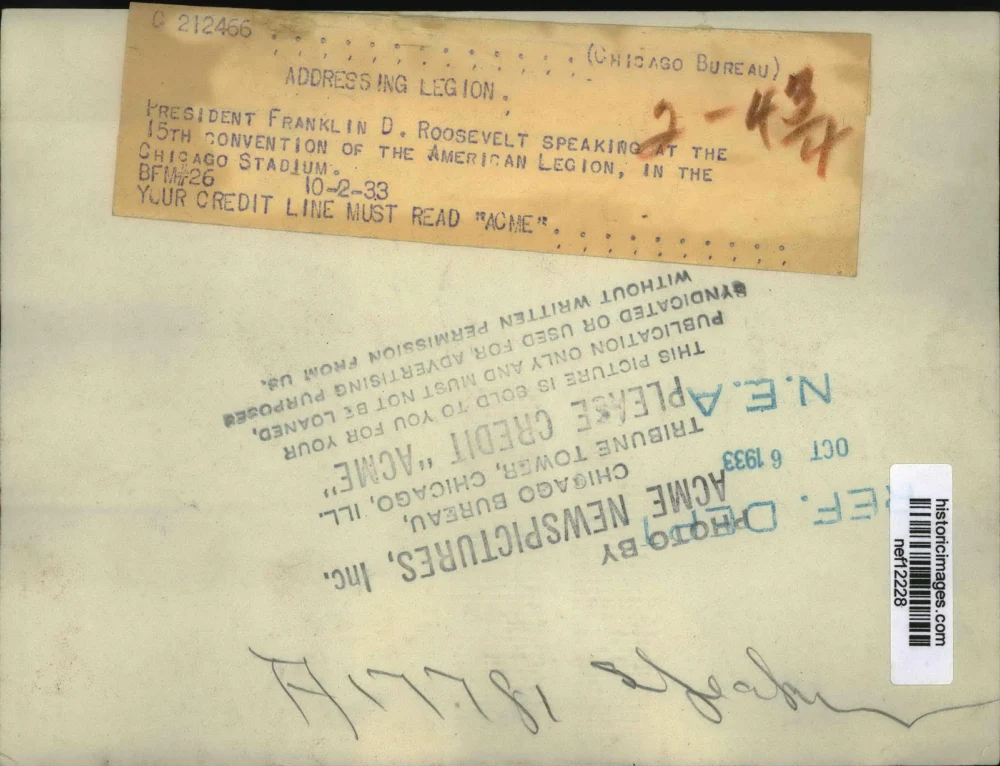 C 212466 . . . . . . . . . . . . (CHICAGO BUREAU)
ADDRESSING LEGION.
PRESIDENT FRANKLIN D. ROOSEVELT SPEAKING AT THE
15TH CONVENTION OF THE AMERICAN LEGION, IN THE
CHICAGO STADIUM.
BFM#26 10-2-33
YOUR CREDIT LINE MUST READ "ACME". . . . . . . . . . .
2-4
PHOTO BY
ACME NEWSPICTURES, Inc.
CHICAGO BUREAU,
TRIBUNE TOWER, CHICAGO, ILL.
PLEASE CREDIT "ACME"
THIS PICTURE IS SOLD TO YOU FOR YOUR
PUBLICATION ONLY AND MUST NOT BE LOANED,
SYNDICATED OR USED FOR ADVERTISING PURPOSES
WITHOUT WRITTEN PERMISSION FROM US.
REF. DEPT.
OCT 6 1933
N.E.A
historicimages.com
nef12228